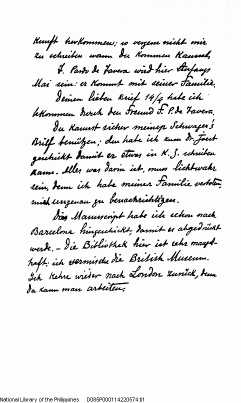 kunft herkommen; so vergess nicht mir
zu schreiben wann du kommen kannst.
T. Pardo de Tavera wird hier Anfangs
Mai sein: er kommt mit seiner Familie.
Deinen lieben Brief 14/4 habe ich
bekommen durch den Freund T. P. de Tavera.
Du kannst sicher meines Schwager's
Brief benützen; den habe ich zum Dr. Joest
geschickt damit er etwas in K. Z. schreiben
kann. Alles was darin ist, muss
sein, denn ich habe meiner Familie verboten,
mich ungenau zu benachrichtigen.
Das Manuscript habe ich schon nach
Barcelona hingeschickt, damit es abgedruckt
werde. – Die Bibliothek hier ist sehr mangel-
haft; ich vermisse die British Museum.
Ich kehre wieder nach London zurück, denn
da kann man arbeiten.
National Library of the Philippines